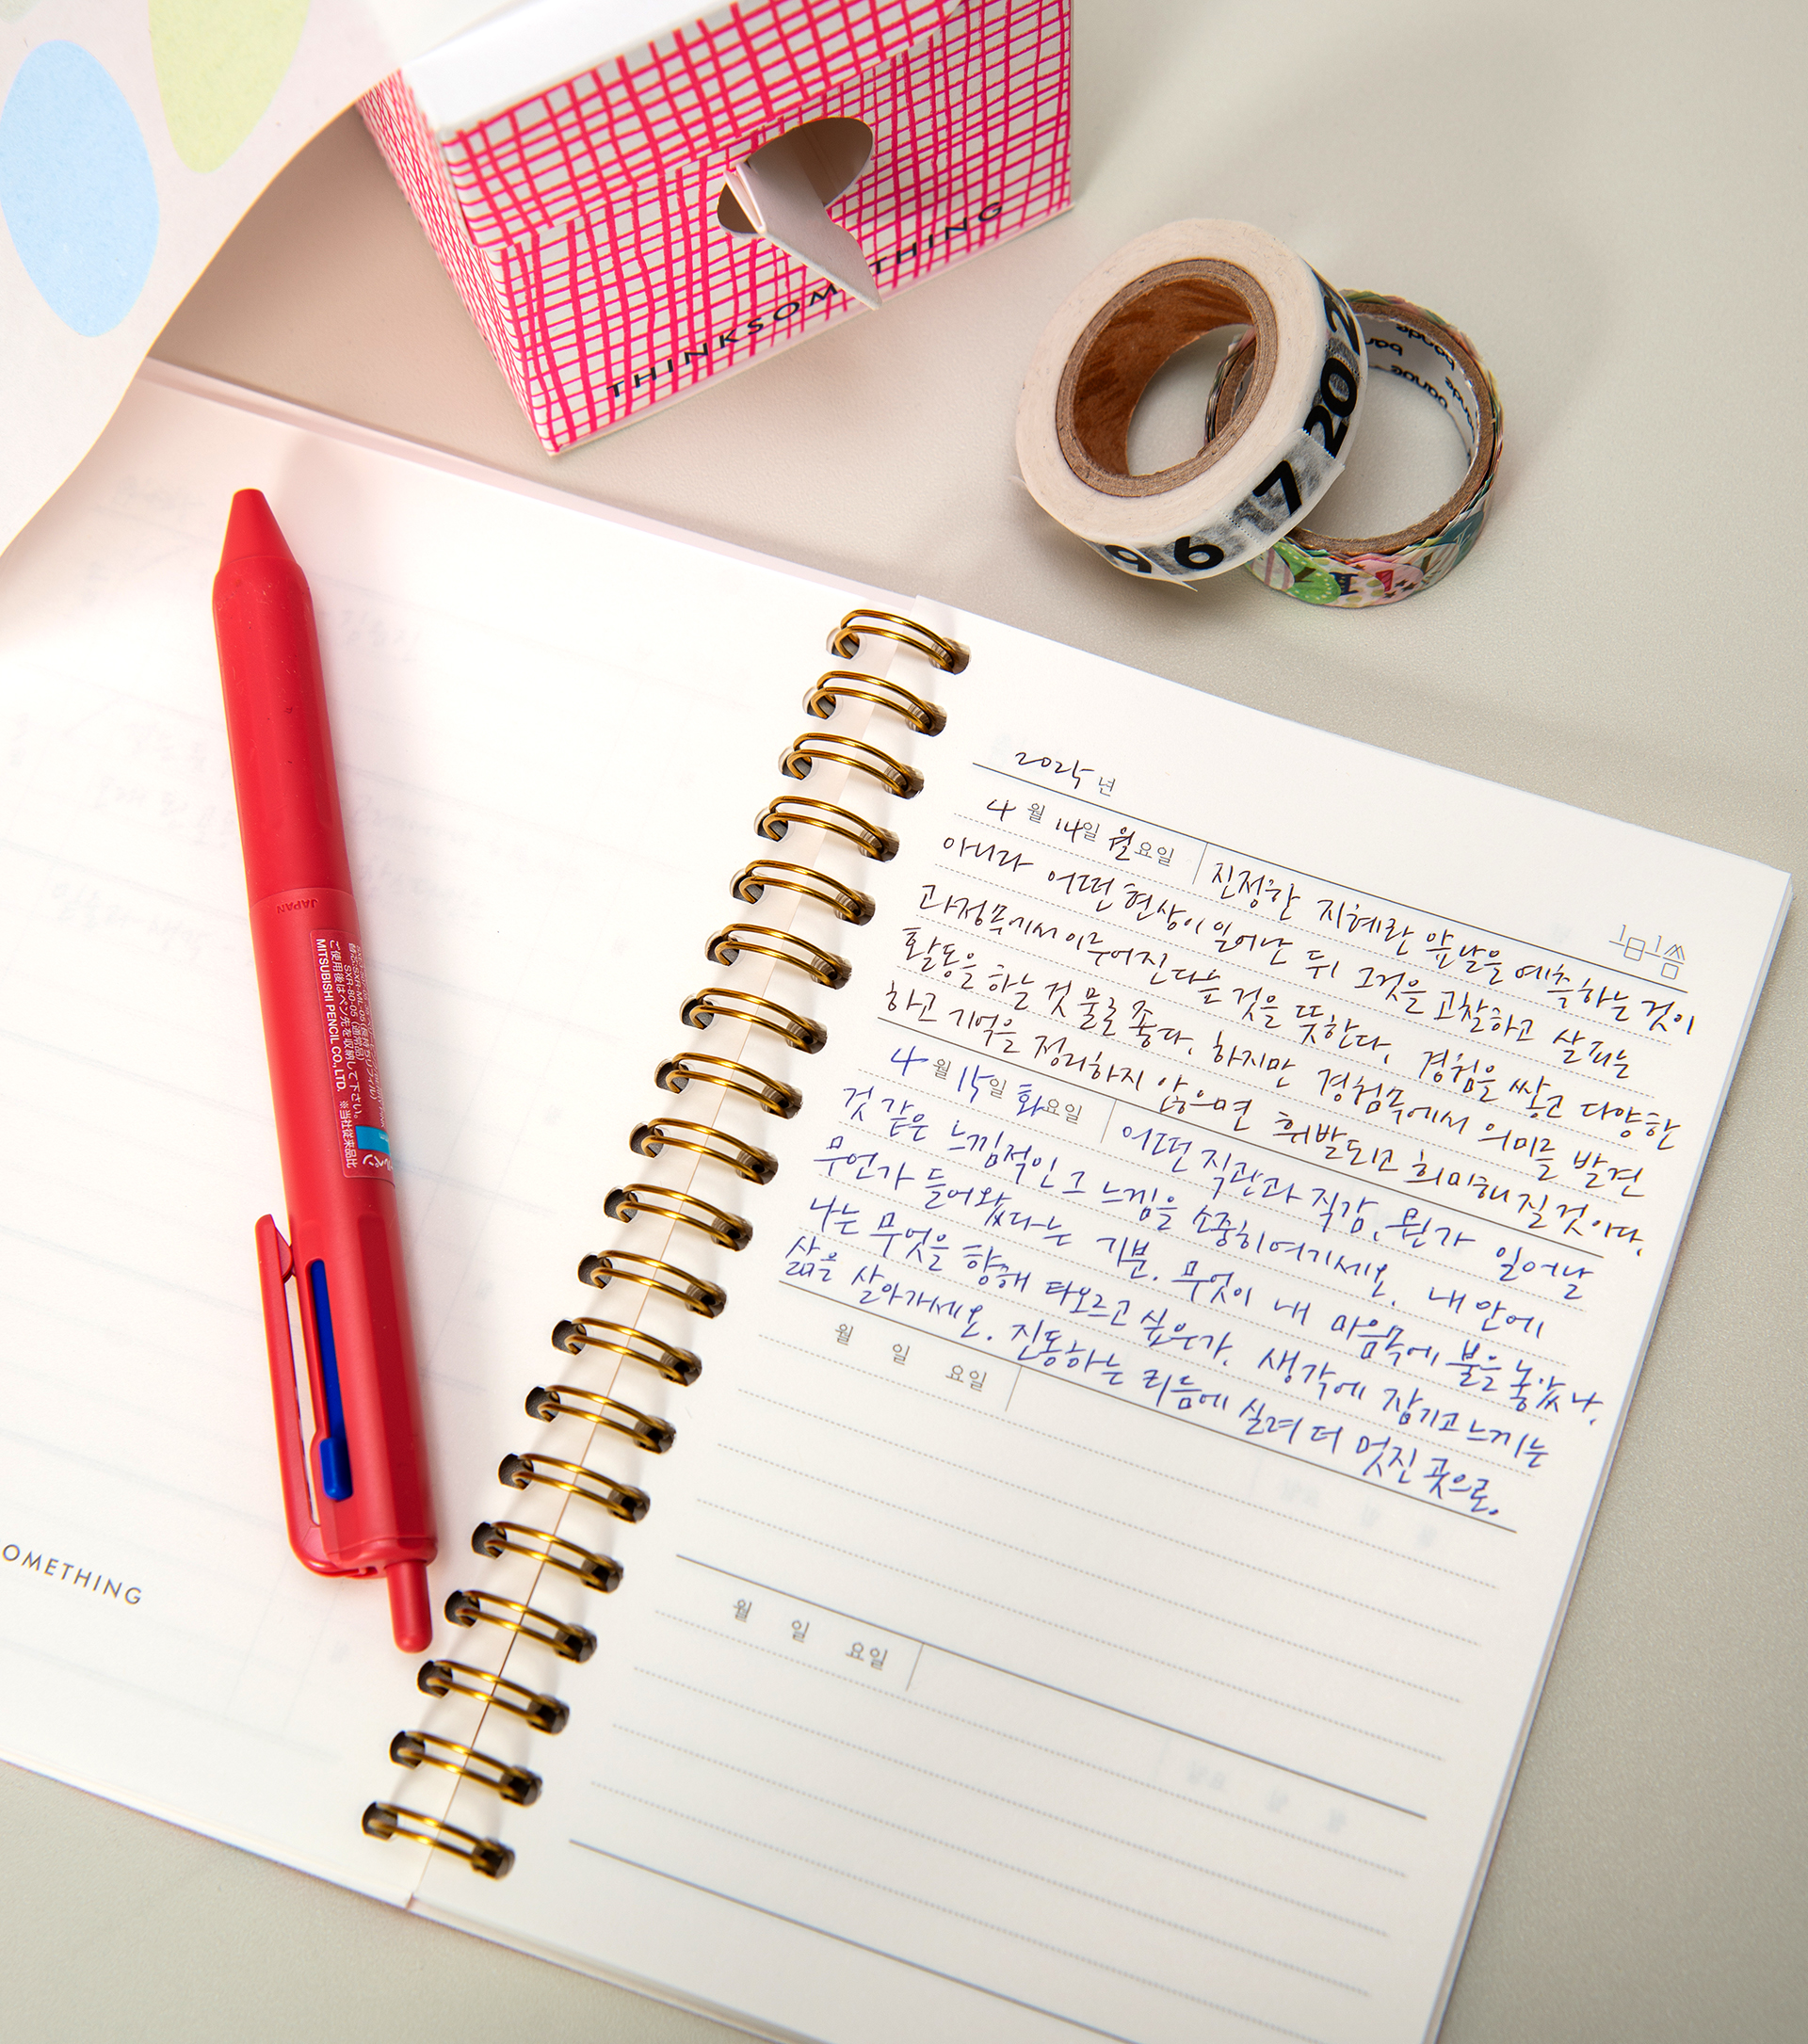 THINKSOMETHING
202
7
9 6
bande
bande
JAPAN
ご使用後はペン先を収納して下さい。 ※当社従来品比
MITSUBISHI PENCIL CO., LTD.
OMETHING
2025년
1일1씀
4월 14일 월요일 진정한 지혜란 앞날을 예측하는 것이
아니라 어떤 현상이 일어난 뒤 그것을 고찰하고 살피는
과정속에서 이루어진다는 것을 뜻한다. 경험을 쌓고 다양한
활동을 하는 것 물론 좋다. 하지만 경험속에서 의미를 발견
하고 기억을 정리하지 않으면 휘발되고 희미해질 것이다.
4월 15일 화요일 어떤 직관과 직감, 뭔가 일어날
것 같은 느낌적인 그 느낌을 소중히여기세요. 내 안에
무언가 들어왔다는 기분. 무엇이 내 마음속에 불을 놓았나.
나는 무엇을 향해 타오르고 싶은가. 생각에 잠기고 느끼는
삶을 살아가세요. 진동하는 리듬에 실려 더 멋진 곳으로.
월 일 요일
월 일 요일